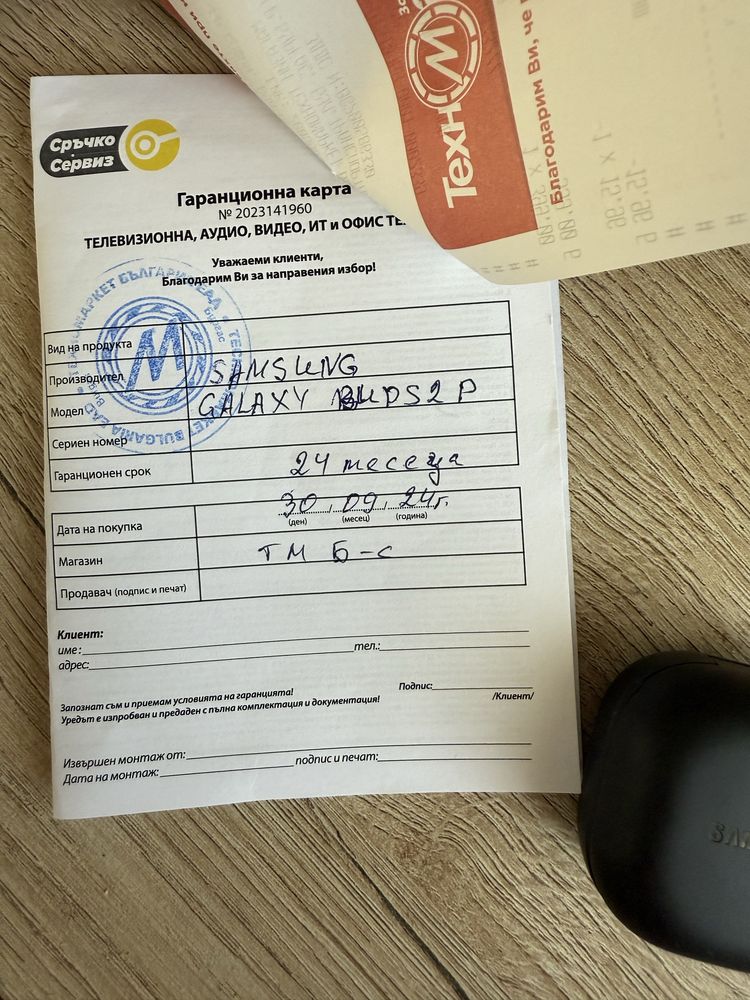 Техн М
Благодарим Ви, че
1 x 399.00
399.00 б
-1 x 15.96
-15.96 б
#
#
Сръчко
Сервиз
Гаранционна карта
№ 2023141960
ТЕЛЕВИЗИОННА, АУДИО, ВИДЕО, ИТ и ОФИС ТЕ
Уважаеми клиенти,
Благодарим Ви за направения избор!
Вид на продукта
Производител SAMSUNG
Модел GALAXY BUDS2 P
Сериен номер
Гаранционен срок 24 месеца
Дата на покупка 30 . 09 . 24 г.
(ден) (месец) (година)
Магазин ТМ Б-с
Продавач (подпис и печат)
Клиент:
име: тел.:
адрес:
Запознат съм и приемам условията на гаранцията! Подпис:
Уредът е изпробван и предаден с пълна комплектация и документация! /Клиент/
Извършен монтаж от: подпис и печат:
Дата на монтаж: